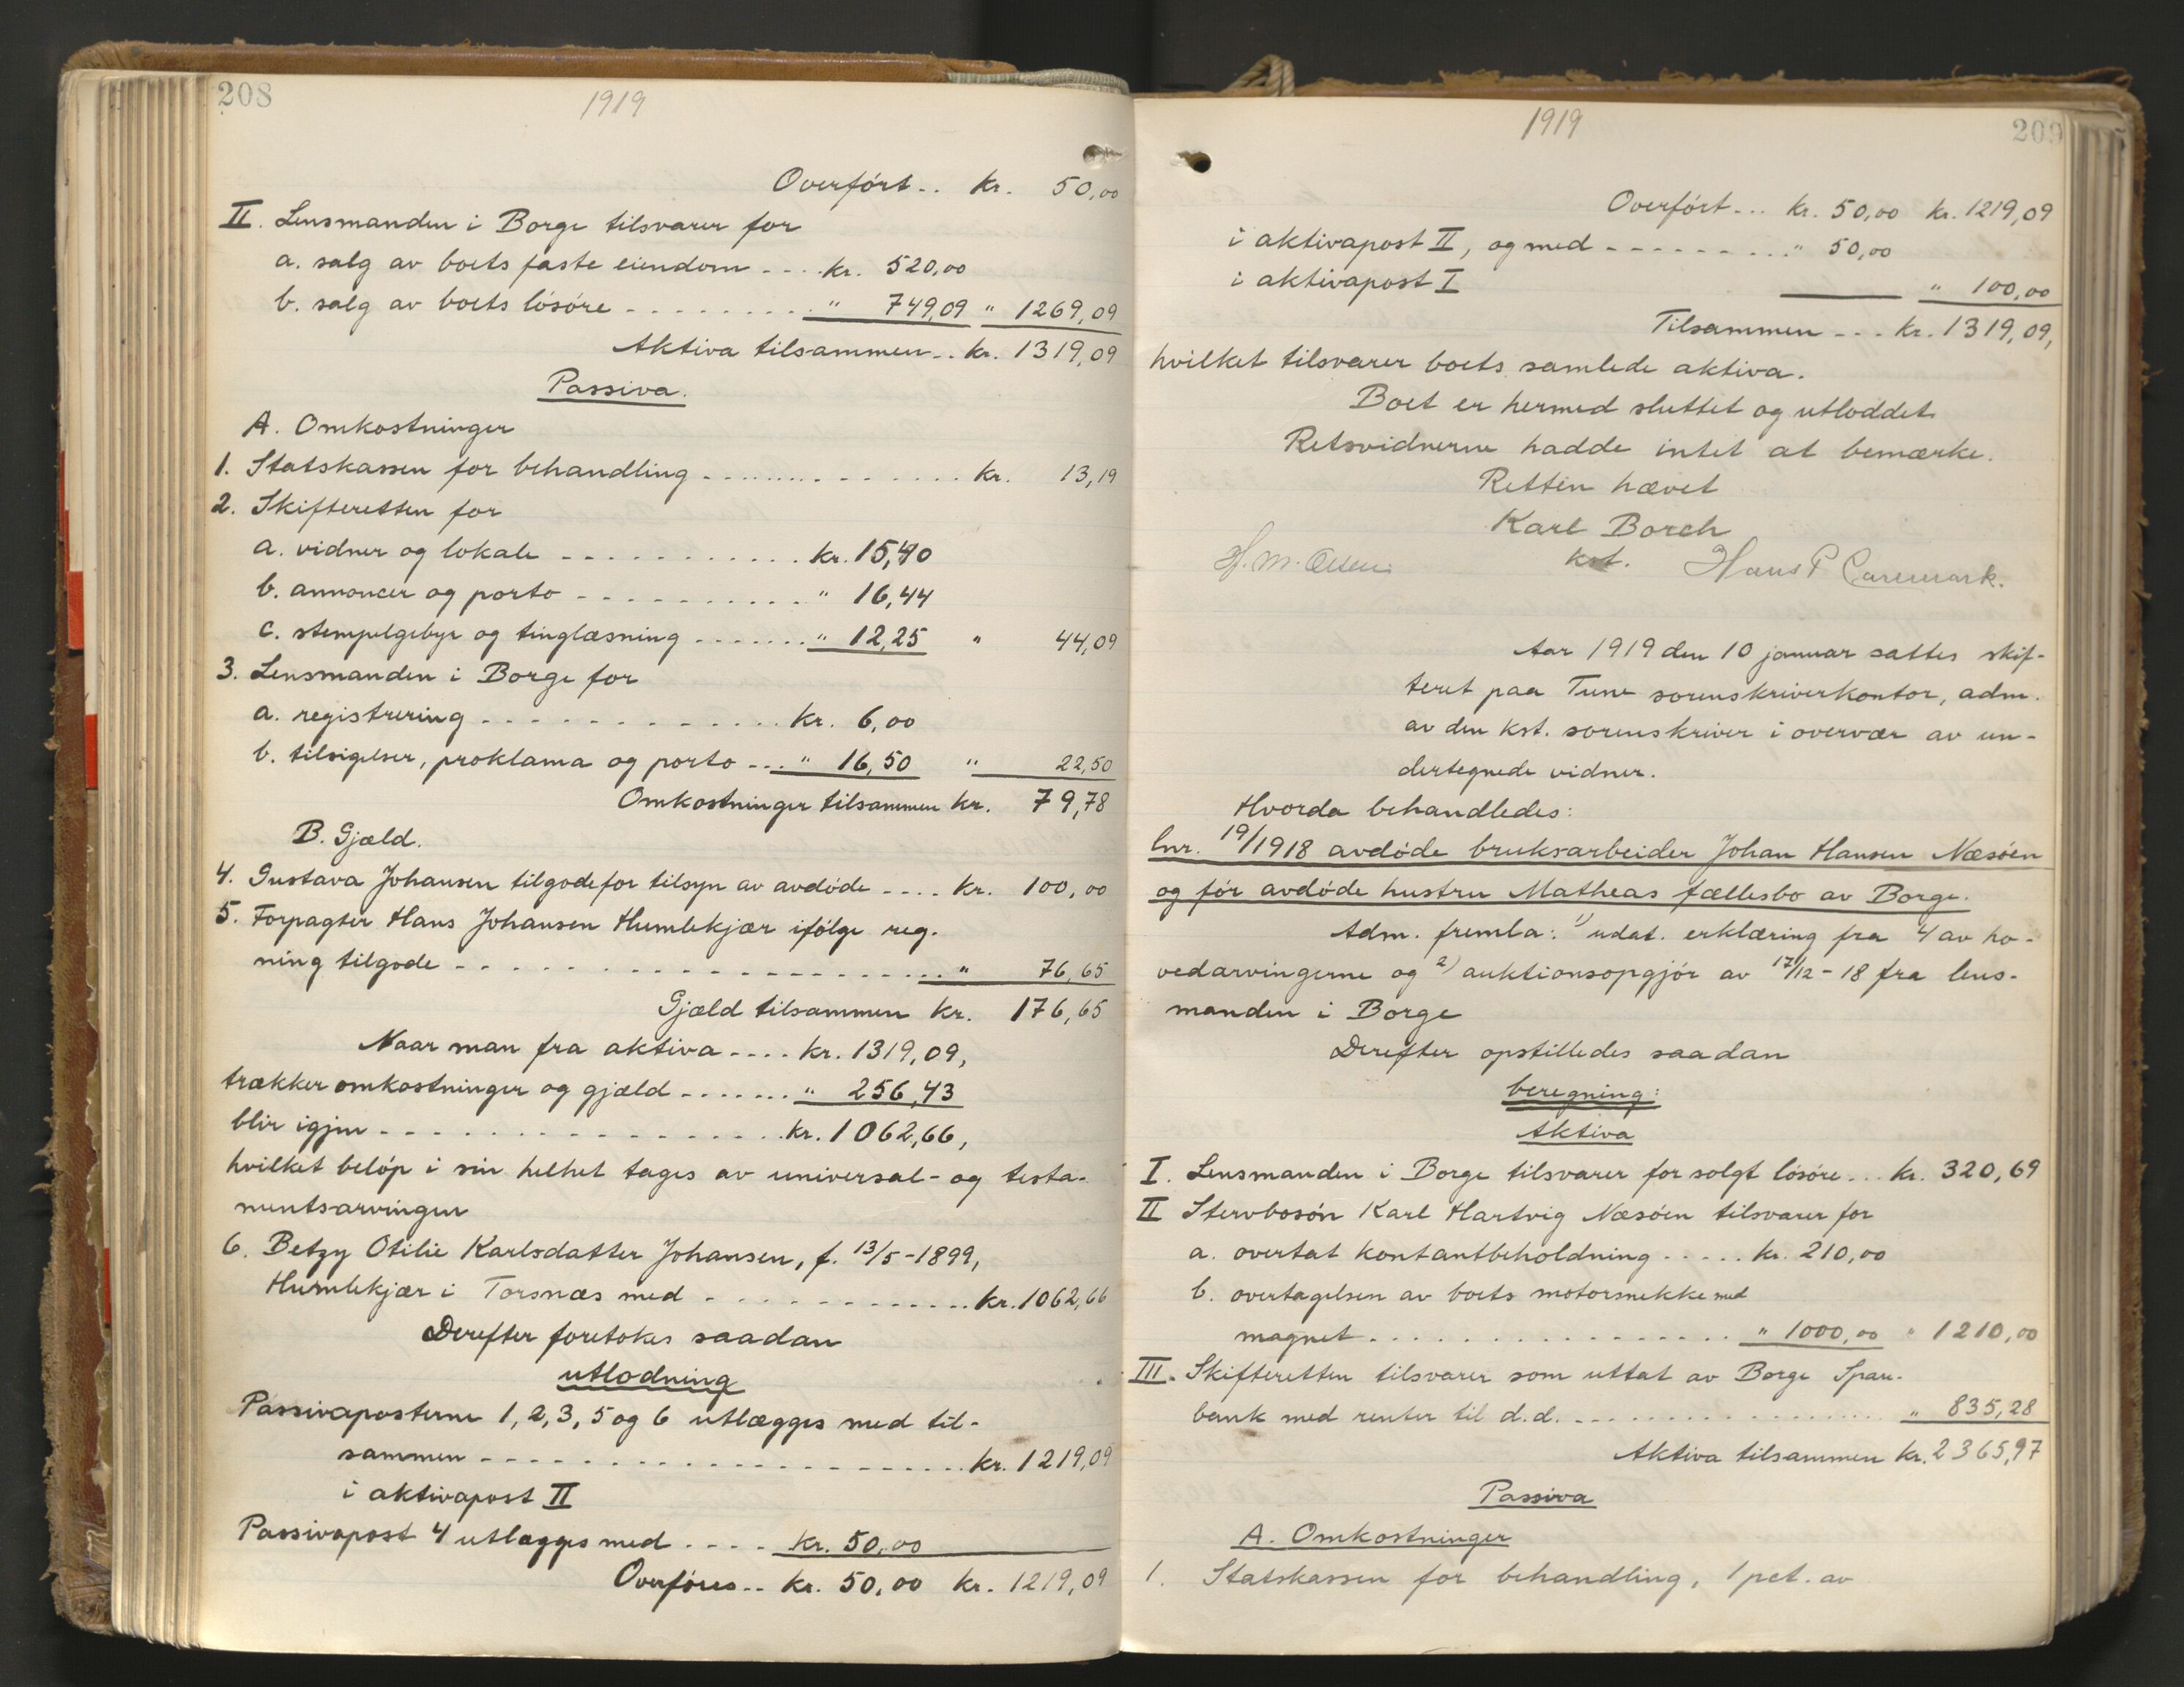 208
1919
Overført.. kr. 50,00
II. Lensmanden i Borge tilsvarer for
a. salg av boets faste eiendom .... kr. 520,00
b. salg av boets løsøre ........ " 749,09 " 1269,09
Aktiva tilsammen.. kr. 1319,09
Passiva.
A. Omkostninger
1. Statskassen for behandling ............... kr. 13,19
2. Skifteretten for
a. vidner og lokale .......... kr. 15,40
b. annoncer og porto .......... " 16,44
c. stempelgebyr og tinglæsning ....... " 12,25 " 44,09
3. Lensmanden i Borge for
a. registrering ............ kr. 6,00
b. tilsigelser, proklama og porto ... " 16,50 " 22,50
Omkostninger tilsammen kr. 79,78
B. Gjæld.
4. Gustava Johansen tilgode for tilsyn av avdøde .... kr. 100,00
5. Forpagter Hans Johansen Humlekjær ifølge reg-
ning tilgode .................... " 76,65
Gjæld tilsammen kr. 176,65
Naar man fra aktiva .... kr. 1319,09,
trækker omkostninger og gjæld ....... " 256,43
blir igjen ................ kr. 1062,66,
hvilket beløp i sin helhet tages av universal- og testa-
mentsarvingen
6. Betzy Otilie Karlsdatter Johansen, f. 13/5-1899,
Humlekjær i Torsnæs med ............ kr. 1062,66
Derefter foretokes saadan
utlodning
Passivaposterne 1, 2, 3, 5 og 6 utlægges med til-
sammen ..................... kr. 1219,09
i aktivapost II
Passivapost 4 utlægges med .... kr. 50,00
Overføres.. kr. 50,00 kr. 1219,09
1919
209
Overført... kr. 50,00 kr. 1219,09
i aktivapost II, og med ......... " 50,00
i aktivapost I " 100,00
Tilsammen ... kr. 1319,09,
hvilket tilsvarer boets samlede aktiva.
Boet er hermed sluttet og utloddet.
Retsvidnerne hadde intet at bemærke.
Retten hævet
Karl Borch
kst.
H. M. Olsen
Hans P
Aar 1919 den 10 januar sattes skif-
teret paa Tune sorenskriverkontor, adm.
av den kst. sorenskriver i overvær av un-
dertegnede vidner.
Hvorda behandledes:
lnr. 19/1918 avdøde bruksarbeider Johan Hansen Næsøen
og før avdøde hustru Matheas fællesbo av Borge.
Adm. fremla: 1) udat. erklæring fra 4 av ho-
vedarvingerne og 2) auktionsopgjør av 17/12-18 fra lens-
manden i Borge
Derefter opstilledes saadan
beregning:
Aktiva
I. Lensmanden i Borge tilsvarer for solgt løsøre ... kr. 320,69
II Stervbosøn Karl Hartvig Næsøen tilsvarer for
a. overtat kontantbeholdning ..... kr. 210,00
b. overtagelsen av boets motorsnekke med
magnet ................ " 1000,00 " 1210,00
III. Skifteretten tilsvarer som uttat av Borge Spare-
bank med renter til d.d. ................. " 835,28
Aktiva tilsammen kr. 2365,97
Passiva
A. Omkostninger
1. Statskassen for behandling, 1 pct. av